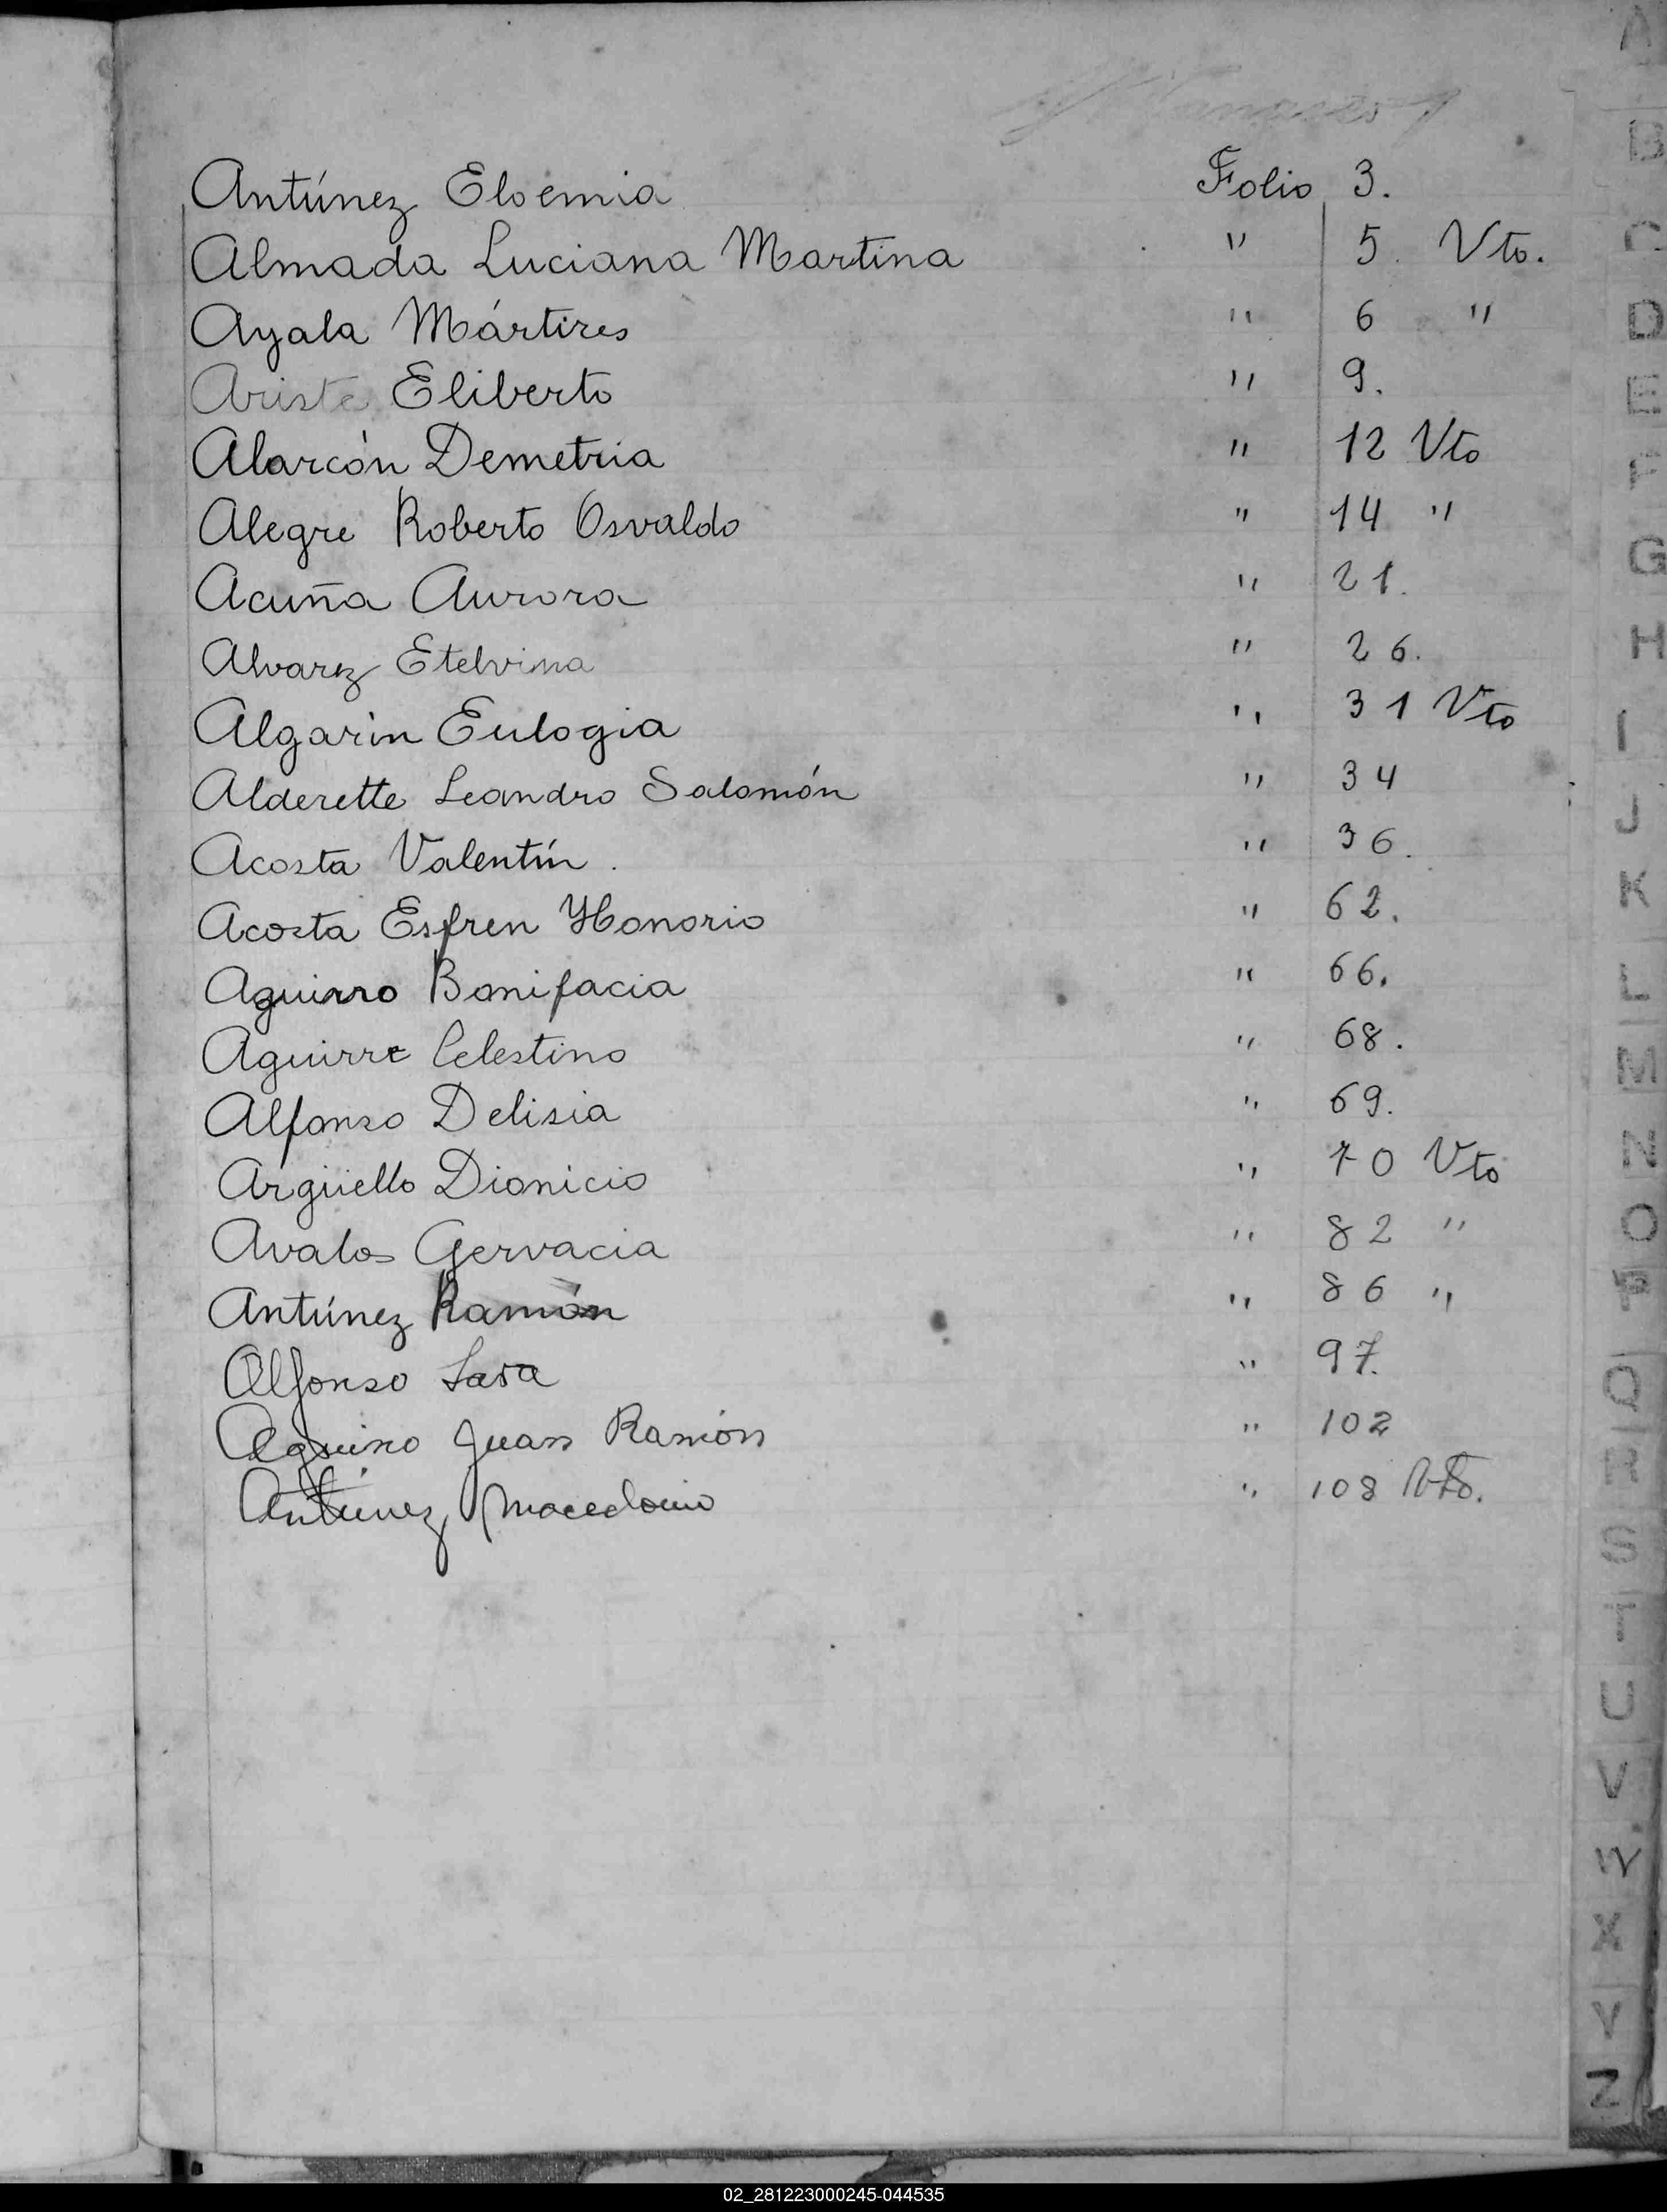 Antúnez Eloemia Folio 3.
Almada Luciana Martina " 5. Vto.
Ayala Mártires " 6 "
Ariste Eliberto " 9.
Alarcón Demetria " 12 Vto
Alegre Roberto Osvaldo " 14 "
Acuña Aurora " 21.
Alvarez Etelvina " 26.
Algarín Eulogia " 31 Vto
Alderette Leandro Salomón " 34
Acosta Valentín. " 36.
Acosta Esfren Honorio " 62.
Aguirro Bonifacia " 66.
Aguirre Celestino " 68.
Alfonso Delisia " 69.
Argüello Dionicio " 70 Vto
Avalos Gervacia " 82 "
Antúnez Ramón " 86 "
Alfonso Sara " 97.
Aquino Juan Ramón " 102
Antúnez Macedonio " 108 Vto.
A
B
C
D
E
F
G
H
I
J
K
L
M
N
O
P
Q
R
S
T
U
V
W
X
Y
Z
02_281223000245-044535